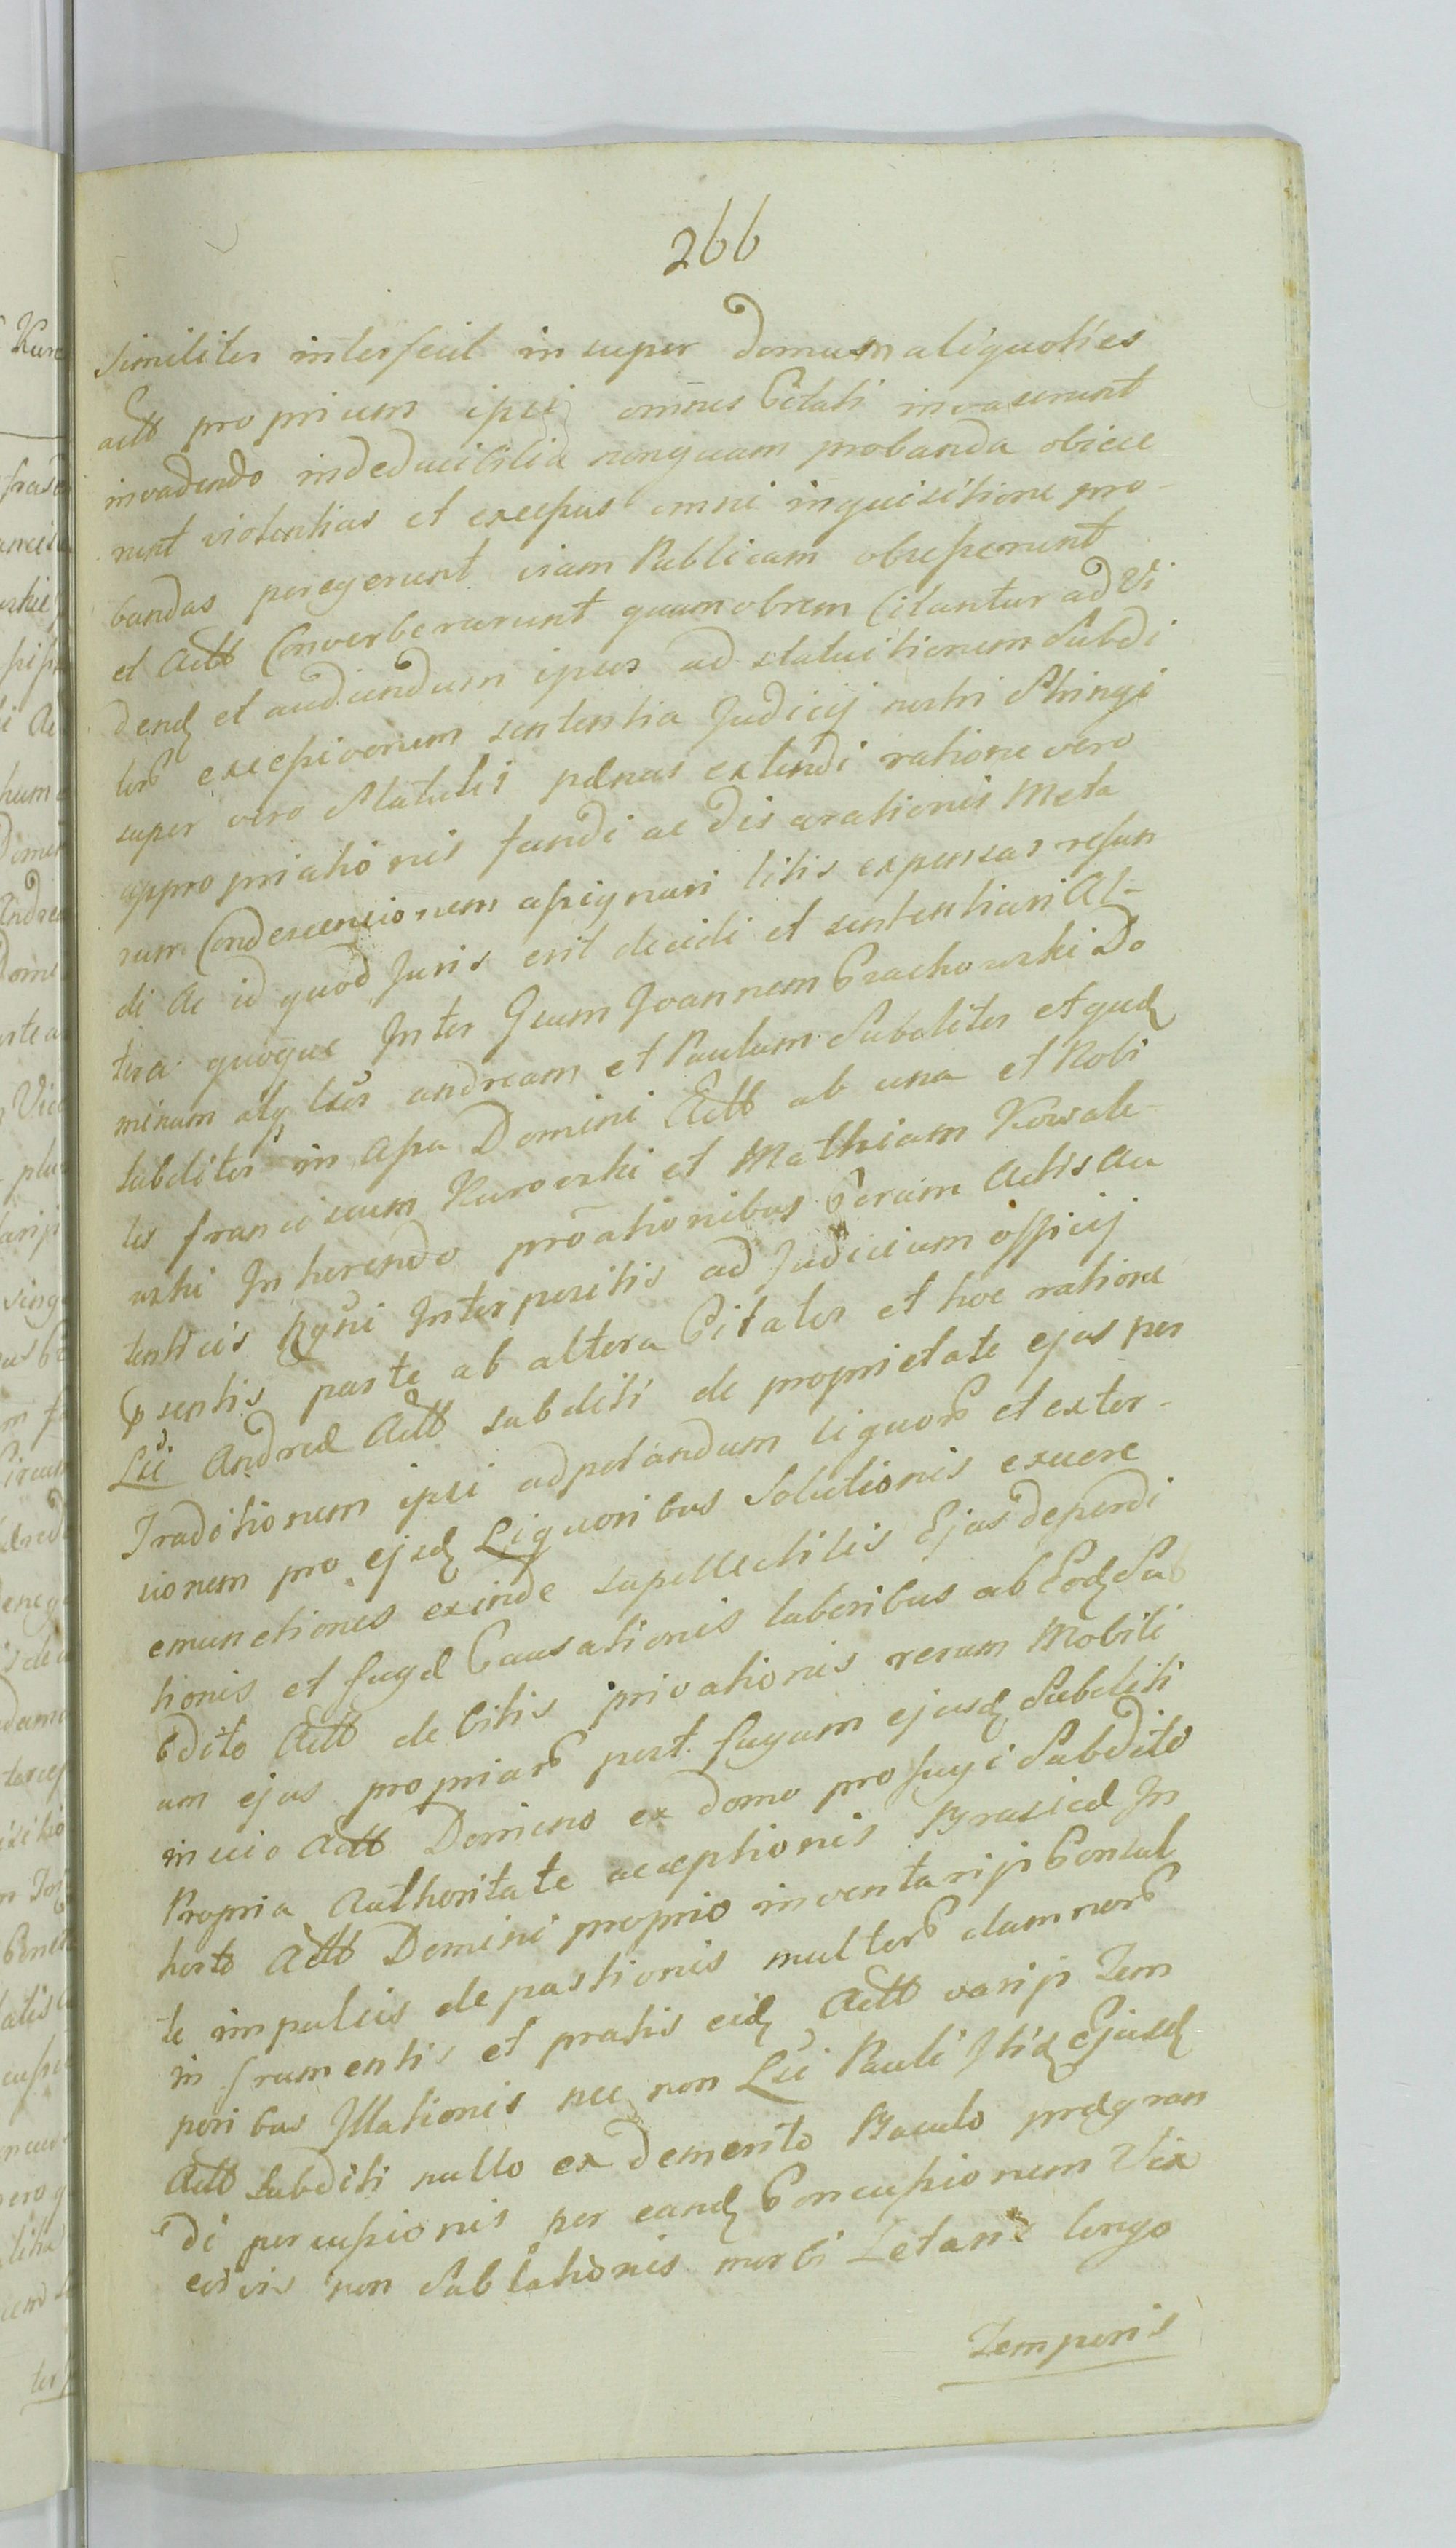 266
similiter interfecit insuper domum aliquoties
actt proprium ipsi omnes Citati invaserunt
invadendo indeducibilia nunquam probanda obiece
runt violentias et excessus omni inquisitione pro-
bandas peregerunt viam Publicam obsesserunt
et actt Converberarunt quamobrem Citantur ad Vi
dend et audiendum ipsos ad statuitionem Subdi
tor excessivorum sententia Judicij nostri Stringi
super vero Statutis pænas extendi ratione vero
appropriationis fundi ac disarationis Meta
rum Condescensionem assignari litis expensas refun
di ac id quod Juris erit decidi et sententiari Al-
tera quoque Inter Gsum Joannem Czachowski Do
minum atq Lsos andream et Paulum Subditos et qud
subditos in assa Domini Actt ab una et Nobi
les franciscum Kurowski et Mathiam Kowale-
wski Inherendo proationibus Coram Actis au
tenticis Interpositis ad Judicium officij
psentis parte ab altera Citatos et hoc ratione
Lsi Andreæ Actt subditi de proprietate ejus per
Traditionem ipsi ad potandum liquor et extor-
sionem pro ejsd Liquoribus Solutionis exuere
emunctiones exinde supellectilis Ejus deperdi
tionis et fugæ Causationis laboribus ab Eod Su
bdito Actt debitis privationis rerum Mobili
um ejus propriar post fugam ejusd Subditi
inscio Actt Domino ex domo profugi Subditi
Propria Authoritate acceptionis Brasicæ In
horto Actt Domini proprio inventarijs Consul
te impulsis depastionis multor damnor
in frumentis et pratis eid Actt varijs Tem
poribus Illationis nec non Lsi Pauli Itid Ejusd
Actt Subditi nullo ex demerito Baculo prægran
di percussionis per eand Concussionem Vix
eis vis non Sublationis morbi Letani longo
Temporis